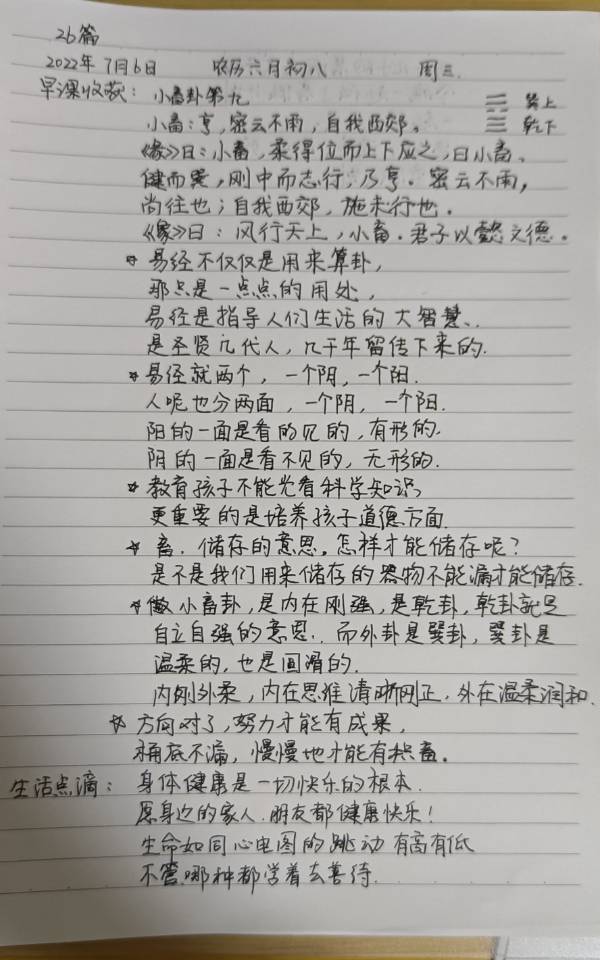 26篇
2022年7月6日 农历六月初八 周三.
早课收获: 小畜卦第九 ☴ 巽上
小畜:亨,密云不雨,自我西郊。 ☰ 乾下
《彖》曰:小畜,柔得位而上下应之,曰小畜。
健而巽,刚中而志行,乃亨。密云不雨,
尚往也;自我西郊,施未行也。
《象》曰:风行天上,小畜.君子以懿文德。
☆ 易经不仅仅是用来算卦,
那只是一点点的用处,
易经是指导人们生活的大智慧、
是圣贤几代人,几千年留传下来的.
☆ 易经就两个,一个阴,一个阳.
人呢也分两面,一个阴,一个阳.
阳的一面是看的见的,有形的.
阴的一面是看不见的,无形的.
☆ 教育孩子不能光看科学知识
更重要的是培养孩子道德方面.
☆ 畜.储存的意思。怎样才能储存呢?
是不是我们用来储存的器物不能漏才能储存.
☆ 做小畜卦,是内在刚强,是乾卦,乾卦就是
自立自强的意思.而外卦是巽卦,巽卦是
温柔的,也是圆滑的.
内刚外柔,内在思维清晰刚正,外在温柔润和.
☆ 方向对了,努力才能有成果,
桶底不漏,慢慢地才能有积畜。
生活点滴: 身体健康是一切快乐的根本.
愿身边的家人.朋友都健康快乐!
生命如同心电图的跳动有高有低
不管哪种都学着去善待.